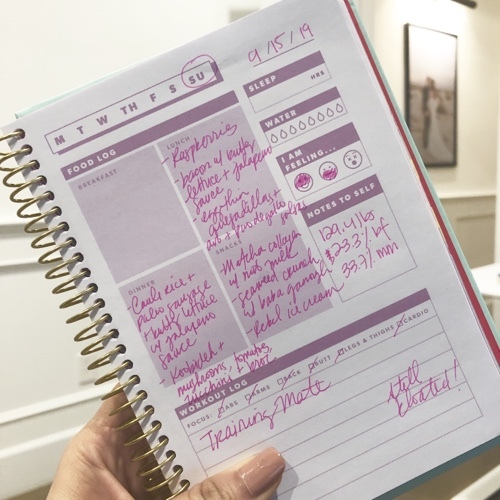 9/15/19
M T W TH F S SU
SLEEP
HRS
WATER
I AM
FEELING...
NOTES TO SELF
129.4 lbs
33.7% mm
FOOD LOG
BREAKFAST
LUNCH
- Raspberries
- bacon w/ butter
lettuce + jalapeno
sauce
quesadillas +
avo + pico de gallo
SNACKS
- Matcha collagen
w/ nut milk
- seaweed crunch
w/ baba ganoush
- Rebel ice cream
DINNER
- Cauli rice +
paleo sausage
+ butter lettuce
w/ jalapeno
sauce
mushrooms, tomatoes,
WORKOUT LOG
FOCUS: ABS ARMS BACK BUTT LEGS & THIGHS CARDIO
Training Mate
Still
bloated!